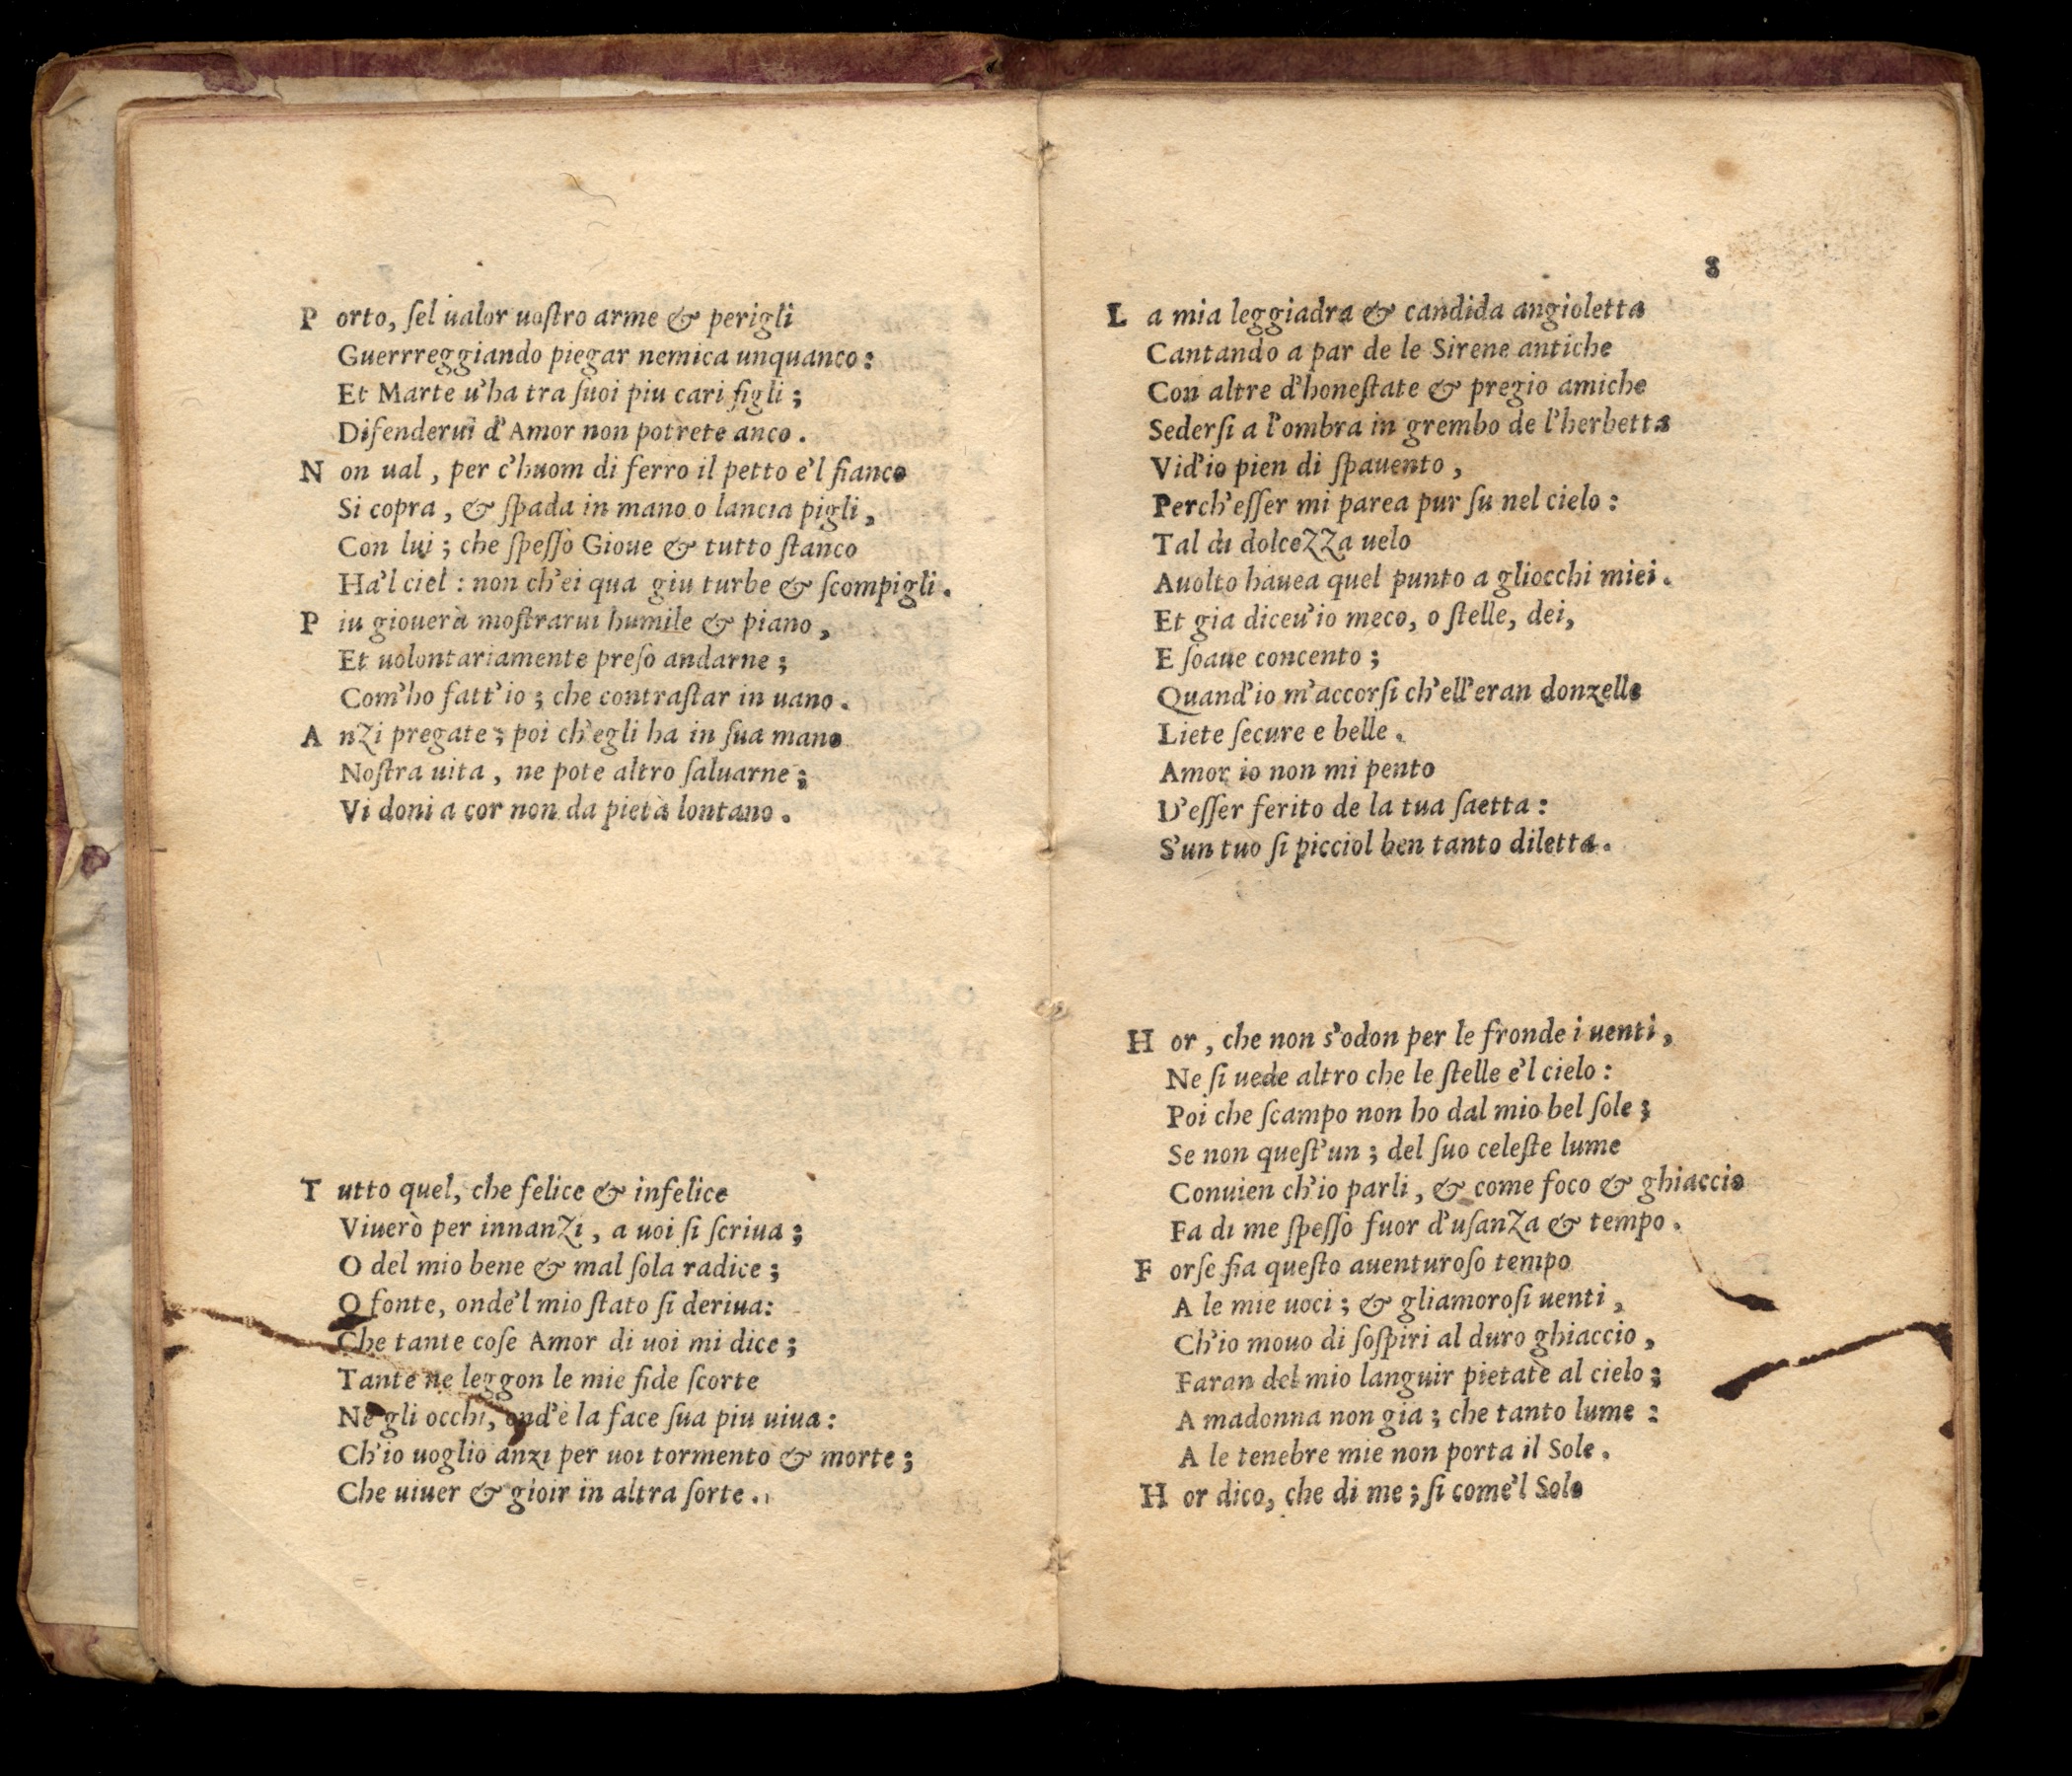 P orto, ſel ualor uoſtro arme & perigli
Guerrreggiando piegar nemica unquanco:
Et Marte u'ha tra ſuoi piu cari figli;
Difenderui d'Amor non potrete anco.
N on ual, per c'huom di ferro il petto e'l fianco
Si copra, & ſpada in mano o lancia pigli,
Con lui; che ſpeſſo Gioue & tutto ſtanco
Ha'l ciel: non ch'ei qua giu turbe & ſcompigli.
P iu giouerà moſtrarui humile & piano,
Et uolontariamente preſo andarne;
Com'ho fatt'io; che contraſtar in uano.
A nzi pregate; poi ch'egli ha in ſua mano
Noſtra uita, ne pote altro ſaluarne;
Vi doni a cor non da pietà lontano.
T utto quel, che felice & infelice
Viuerò per innanzi, a uoi ſi ſcriua;
O del mio bene & mal ſola radice;
O fonte, onde'l mio ſtato ſi deriua:
Che tante coſe Amor di uoi mi dice;
Tante ne leggon le mie fide ſcorte
Ne gli occhi, ond'è la face ſua piu uiua:
Ch'io uoglio anzi per uoi tormento & morte;
Che uiuer & gioir in altra ſorte.
8
L a mia leggiadra & candida angioletta
Cantando a par de le Sirene antiche
Con altre d'honeſtate & pregio amiche
Sederſi a l'ombra in grembo de l'herbetta
Vid'io pien di ſpauento,
Perch'eſſer mi parea pur ſu nel cielo:
Tal di dolcezza uelo
Auolto hauea quel punto a gliocchi miei.
Et gia diceu'io meco, o ſtelle, dei,
E ſoaue concento;
Quand'io m'accorſi ch'ell'eran donzelle
Liete ſecure e belle.
Amor io non mi pento
D'eſſer ferito de la tua ſaetta:
S'un tuo ſi picciol ben tanto diletta.
H or, che non s'odon per le fronde i uenti,
Ne ſi uede altro che le ſtelle e'l cielo:
Poi che ſcampo non ho dal mio bel ſole;
Se non queſt'un; del ſuo celeſte lume
Conuien ch'io parli, & come foco & ghiaccio
Fa di me ſpeſſo fuor d'uſanza & tempo.
F orſe fia queſto auenturoſo tempo
A le mie uoci; & gliamoroſi uenti,
Ch'io mouo di ſoſpiri al duro ghiaccio,
Faran del mio languir pietate al cielo;
A madonna non gia; che tanto lume:
A le tenebre mie non porta il Sole.
H or dico, che di me; ſi come'l Sole